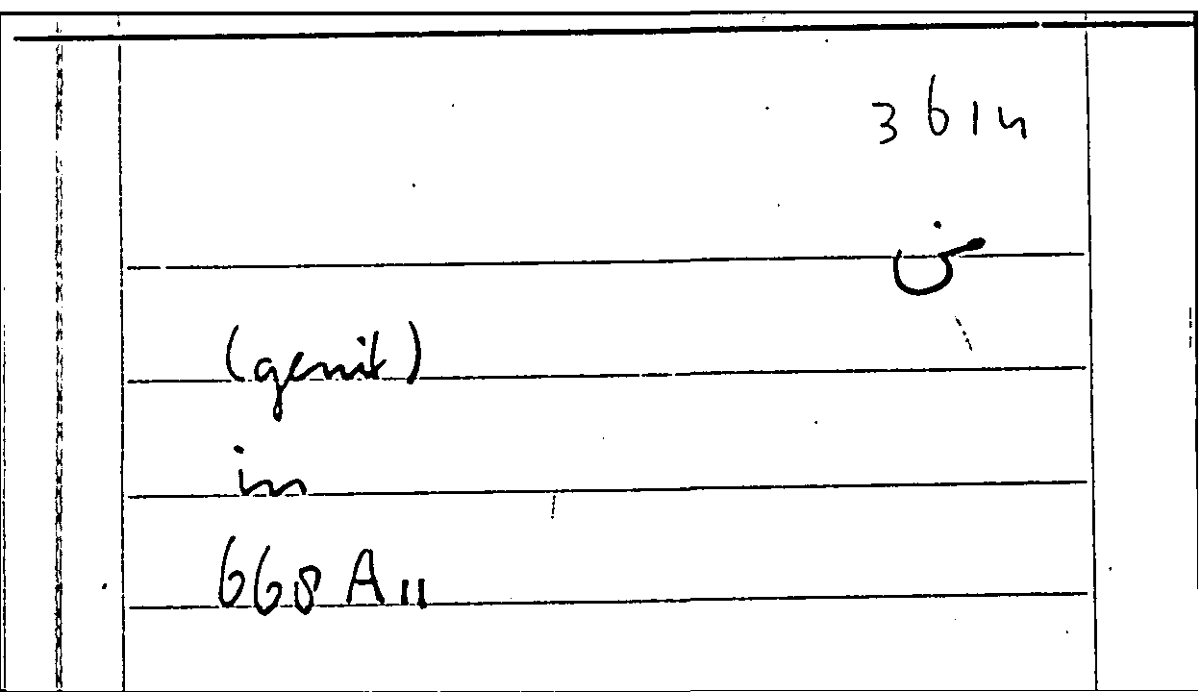 3614
(genit)
in
668 A 11